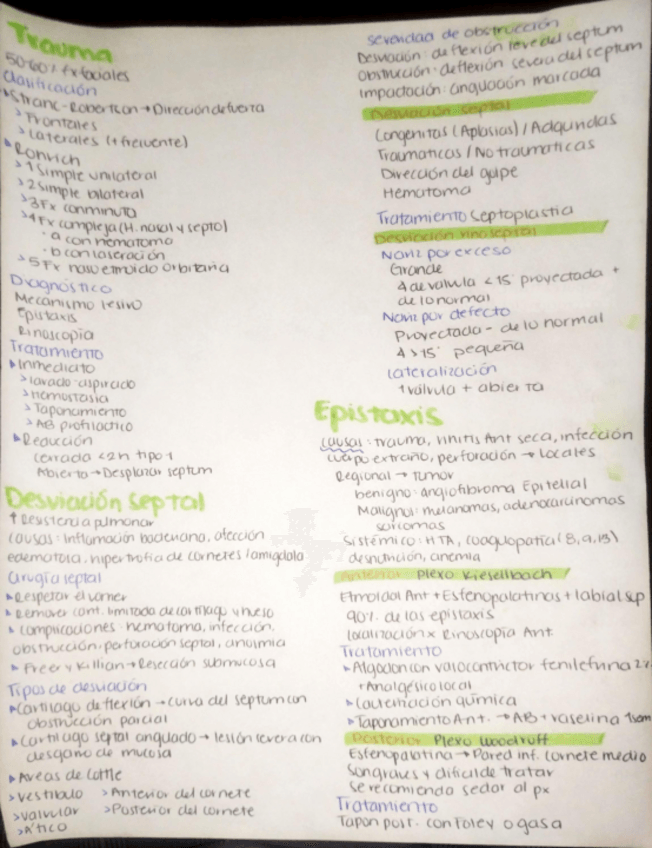 Trauma
50-60% fx faciales
Clasificación
Stranc-Robertson → Dirección de fuerza
> Frontales
> Laterales (+ frecuente)
Rohrich
> 1 Simple unilateral
> 2 Simple bilateral
> 3 Fx conminuta
> 4 Fx compleja (H. nasal y septo)
· a con hematoma
· b con laseración
> 5 Fx naso etmoido orbitaria
Diagnóstico
Mecanismo lesivo
Epistaxis
Rinoscopia
Tratamiento
Inmediato
> lavado-aspirado
> Hemostasia
> Taponamiento
> AB profilactico
Reducción
Cerrada <2h tipo 1
Abierta → Desplazar septum
Desviación Septal
↑ Resistencia pulmonar
Causas: Inflamación bacteriana, afección
edematosa, hipertrofia de cornetes/amigdala
Cirugía septal
Respetar el vomer
Remover cant. limitada de cartilago y hueso
Complicaciones: hematoma, infección,
obstrucción, perforación septal, anosmia
Freer y Killian → Resección submucosa
Tipos de desviación
Cartilago deflexión → curva del septum con
obstrucción parcial
Cartilago septal angulado → lesión severa con
desgarro de mucosa
Areas de Cottle
> Vestibulo > Anterior del cornete
> Valvular > Posterior del cornete
> Ático
Severidad de obstrucción
Desviación: deflexión leve del septum
Obstrucción: deflexión severa del septum
Impactación: angulación marcada
Desviación septal
Congenitas (Aplasias) / Adquiridas
Traumaticas / No traumaticas
Dirección del golpe
Hematoma
Tratamiento Septoplastia
Desviación rinoseptal
Nariz por exceso
Grande
∡ de valvula < 15° proyectada +
de lo normal
Nariz por defecto
Proyectada - de lo normal
∡ > 15° pequeña
Lateralización
1 válvula + abierta
Epistaxis
Causas: trauma, rinitis Ant seca, infección
cuerpo extraño, perforación → Locales
Regional → Tumor
benigno: angiofibroma Epitelial
Maligno: melanomas, adenocarcinomas
sarcomas
Sistémico: HTA, coagulopatia (8,9,13)
desnutrición, anemia
Anterior Plexo Kiesellbach
Etmoidal Ant + Esfenopalatinas + labial sup
90% de las epistaxis
localización x Rinoscopia Ant.
Tratamiento
Algodon con vasoconstrictor fenilefrina 2%
+ Analgésico local
Cauterización química
Taponamiento Ant. → AB + vaselina 1sem
Posterior Plexo Woodruff
Esfenopalatina → Pared inf. cornete medio
Sangrales y dificil de tratar
Se recomienda sedar al px
Tratamiento
Tapon post. con Foley o gasa